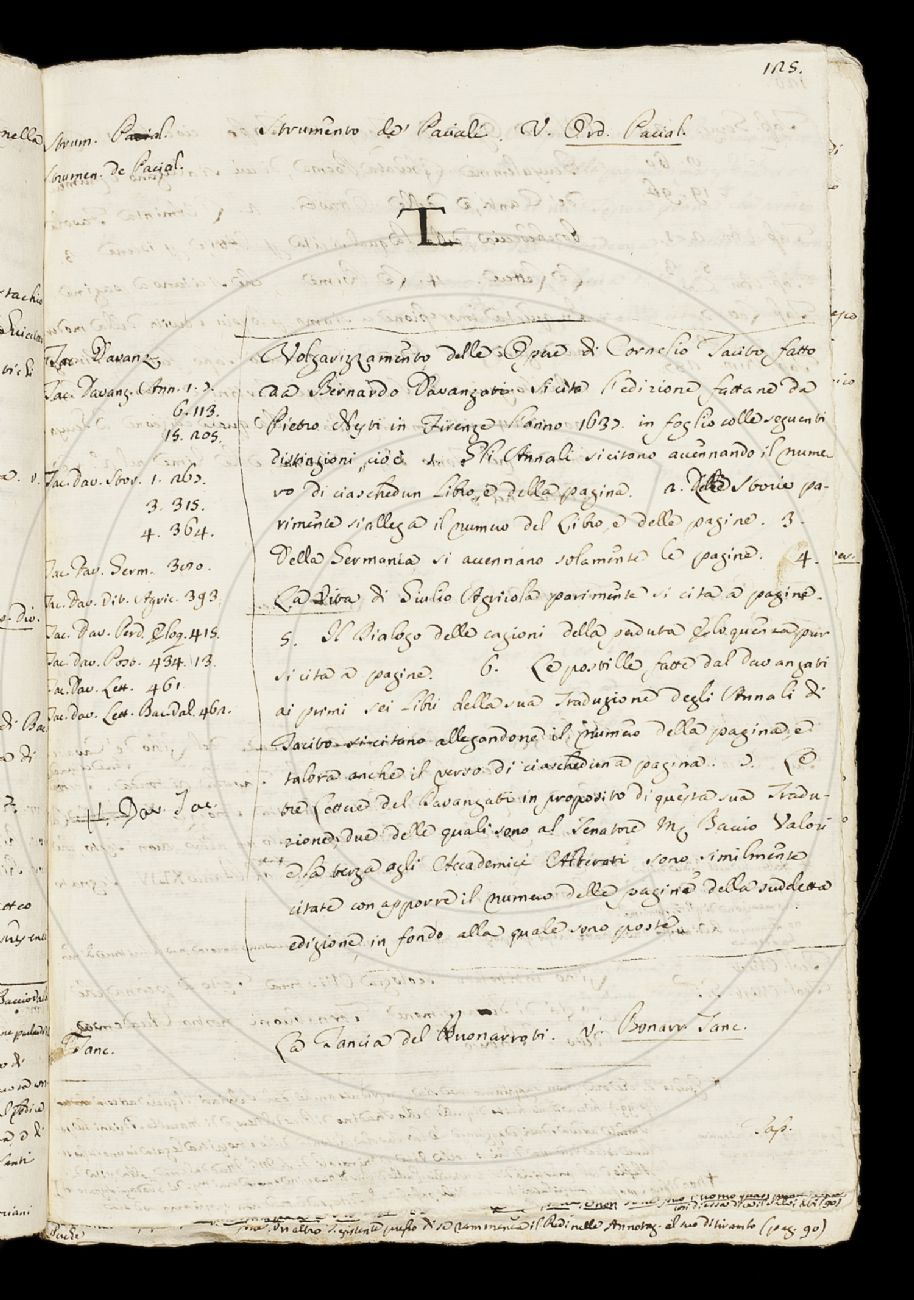 125.
Strum. Pacial. Strumento de' Paciali. V. Ord. Pacial.
Strumen. de Pacial.
T
Tac. Davanz. Volgarizzamento delle Opere di Cornelio Tacito fatto
Tac. Davanz. Ann. 1. 7. da Bernardo Davanzati. Si cita l'edizione fattane da
6. 113. Pietro Nesti in Firenze l'anno 1637. in foglio colle seguenti
15. 205. distinzioni, cioè 1. Gli Annali si citano accennando il nume-
Tac. Dav. Stor. 1. 267. ro di ciaschedun Libro, e della pagina. 2. Delle Storie pa-
3. 315. rimente si allega il numero del Libro, e delle pagine. 3.
4. 364. Della Germania si accennano solamente le pagine. 4.
Tac. Dav. Germ. 370.
Tac. Dav. Vit. Agric. 393. La Vita di Giulio Agricola parimente si cita a pagine.
Tac. Dav. Perd. Eloq. 415. 5. Il Dialogo delle cagioni della perduta Eloquenza pur
Tac. Dav. Post. 434. 13. si cita a pagine. 6. Le postille fatte dal Davanzati
Tac. Dav. Lett. 461. ai primi sei Libri della sua Traduzione degli Annali di
Tac. Dav. Lett. Bac. Val. 462. Tacito si citano allegandone il numero della pagina, e
talora anche il verso di ciascheduna pagina. 7. Le
Dav. Tac. tre Lettere del Davanzati in proposito di questa sua Tradu-
zione, due delle quali sono al Senatore Baccio Valori
e la terza agli Accademici Alterati sono similmente
citate con apporre il numero delle pagine della suddetta
edizione, in fondo alla quale sono poste.
Tanc. La Tancia del Buonarroti. V. Bonarr. Tanc.
Tass.
un altro esistente presso di se rammenta il Redi nelle Annotaz. al suo Ditirambo (pag. 90)